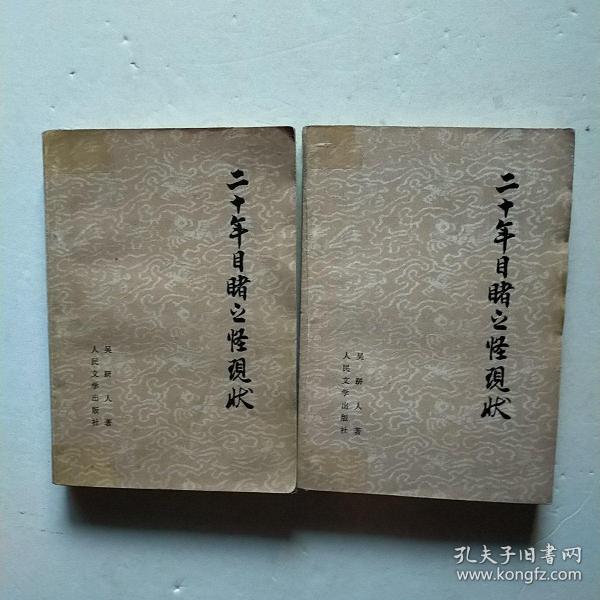 二十年目睹之怪現狀
吴趼人 著
人民文学出版社
二十年目睹之怪現狀
吴趼人 著
人民文学出版社
孔夫子旧書网
www.kongfz.com